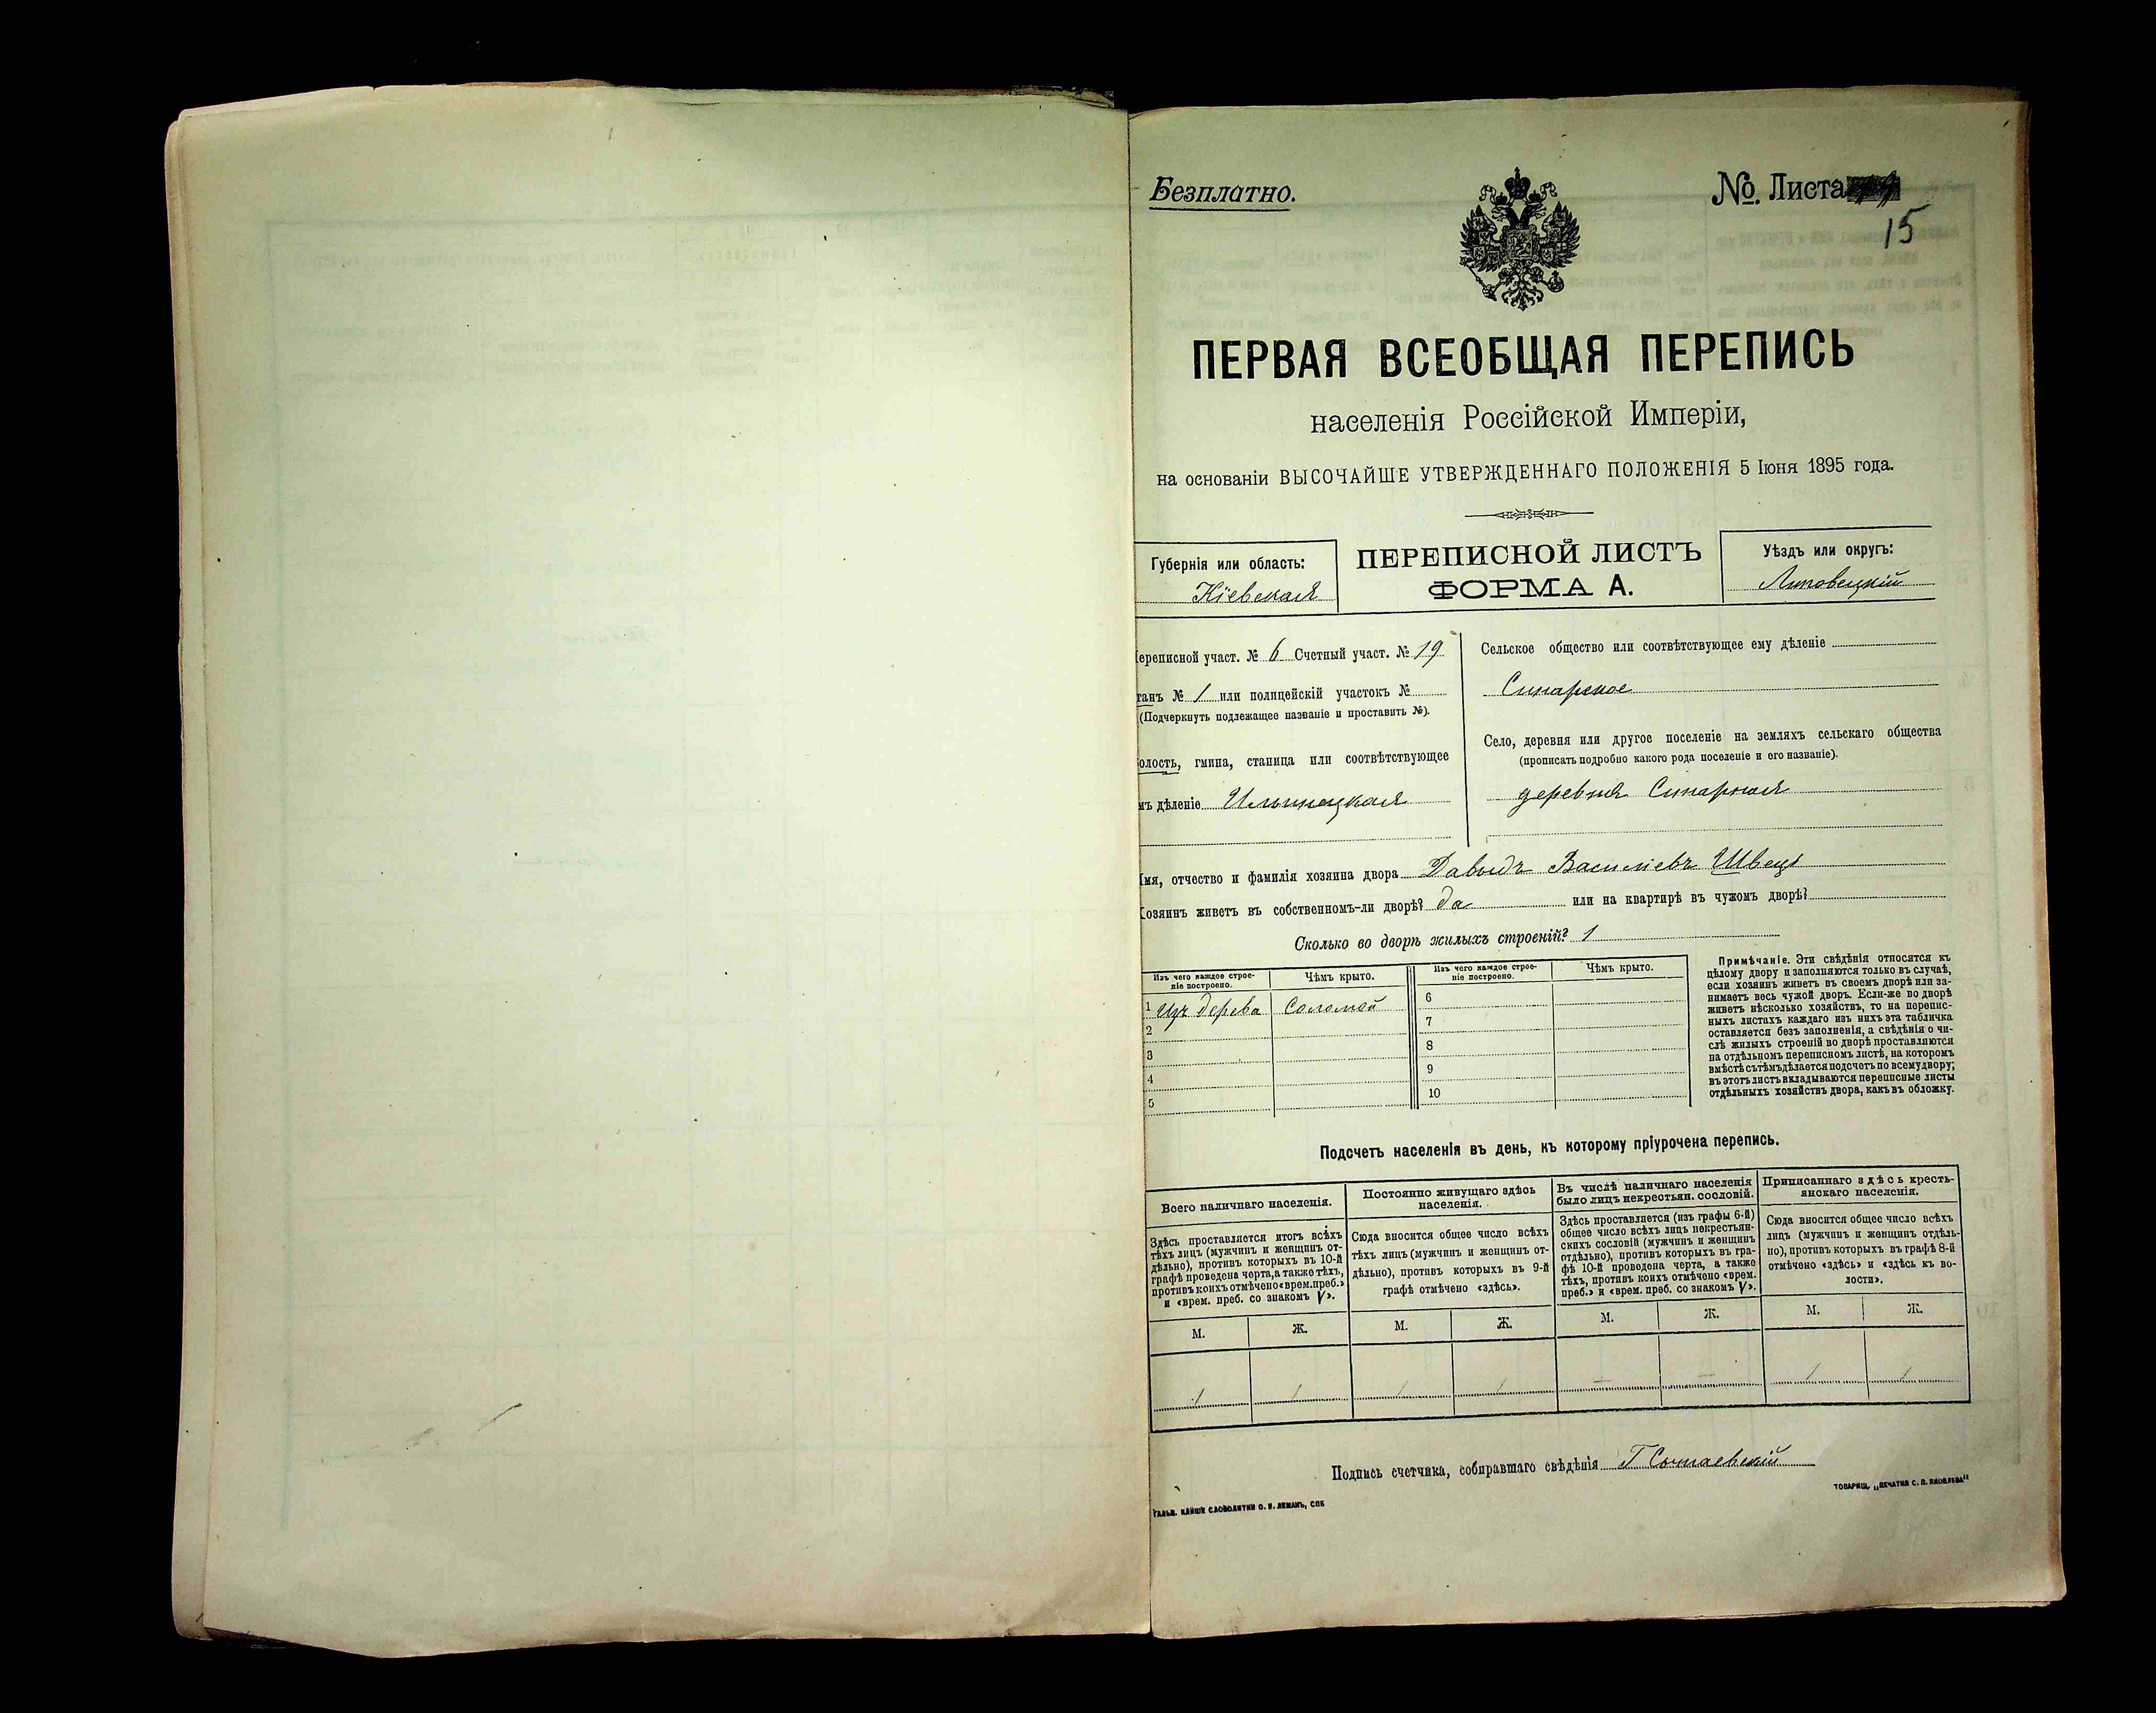 Безплатно.
№ Листа
15
ПЕРВАЯ ВСЕОБЩАЯ ПЕРЕПИСЬ
населенія Россійской Имперіи,
на основаніи ВЫСОЧАЙШЕ УТВЕРЖДЕННАГО ПОЛОЖЕНІЯ 5 Іюня 1895 года.
Губернія или область:
Кіевская
ПЕРЕПИСНОЙ ЛИСТЪ
ФОРМА А.
Уѣздъ или округъ:
Липовецкій
ереписной участ. № 6 Счетный участ. № 19
танъ № 1 или полицейскій участокъ №
(Подчеркнуть подлежащее названіе и проставить №).
олость, гмина, станица или соотвѣтствующее
мъ дѣленіе Ильинецкая
Сельское общество или соотвѣтствующее ему дѣленіе
Синарное
Село, деревня или другое поселеніе на земляхъ сельскаго общества
(прописать подробно какого рода поселеніе и его названіе).
деревня Синарная
мя, отчество и фамилія хозяина двора Давыдъ Васильевъ Швецъ
озяинъ живетъ въ собственномъ-ли дворѣ? да или на квартирѣ въ чужомъ дворѣ?
Сколько во дворѣ жилыхъ строеній? 1
Изъ чего каждое строе-
ніе построено.
Чѣмъ крыто.
Изъ чего каждое строе-
ніе построено.
Чѣмъ крыто.
1 Изъ дерева Соломой
2
3
4
5
6
7
8
9
10
Примѣчаніе. Эти свѣдѣнія относятся къ
цѣлому двору и заполняются только въ случаѣ,
если хозяинъ живетъ въ своемъ дворѣ или за-
нимаетъ весь чужой дворъ. Если-же во дворѣ
живетъ нѣсколько хозяйствъ, то на перепис-
ныхъ листахъ каждаго изъ нихъ эта табличка
оставляется безъ заполненія, а свѣдѣнія о чи-
слѣ жилыхъ строеній во дворѣ проставляются
на отдѣльномъ переписномъ листѣ, на которомъ
вмѣстѣ съ тѣмъ дѣлается подсчетъ по всему двору;
въ этотъ листъ вкладываются переписные листы
отдѣльныхъ хозяйствъ двора, какъ въ обложку.
Подсчетъ населенія въ день, къ которому пріурочена перепись.
Всего наличнаго населенія.
Здѣсь проставляется итогъ всѣхъ
тѣхъ лицъ (мужчинъ и женщинъ от-
дѣльно), противъ которыхъ въ 10-й
графѣ проведена черта, а также тѣхъ,
противъ коихъ отмѣчено «врем. преб.»
и «врем. преб. со знакомъ V».
М. Ж.
1 1
Постоянно живущаго здѣсь
населенія.
Сюда вносится общее число всѣхъ
тѣхъ лицъ (мужчинъ и женщинъ от-
дѣльно), противъ которыхъ въ 9-й
графѣ отмѣчено «здѣсь».
М. Ж.
1 1
Въ числѣ наличнаго населенія
было лицъ некрестьян. сословій.
Здѣсь проставляется (изъ графы 6-й)
общее число всѣхъ лицъ некрестьян-
скихъ сословій (мужчинъ и женщинъ
отдѣльно), противъ которыхъ въ гра-
фѣ 10-й проведена черта, а также
тѣхъ, противъ коихъ отмѣчено «врем.
преб.» и «врем. преб. со знакомъ V».
М. Ж.
— —
Приписаннаго здѣсь кресть-
янскаго населенія.
Сюда вносится общее число всѣхъ
лицъ (мужчинъ и женщинъ отдѣль-
но), противъ которыхъ въ графѣ 8-й
отмѣчено «здѣсь» и «здѣсь къ во-
лости».
М. Ж.
1 1
Подпись счетчика, собиравшаго свѣдѣнія Г
ГАЛЬВ. КЛИШЕ СЛОВОЛИТНИ О. И. ЛЕМАНЪ, СПБ
ТОВАРИЩ. „ПЕЧАТНЯ С. П. ЯКОВЛЕВА"